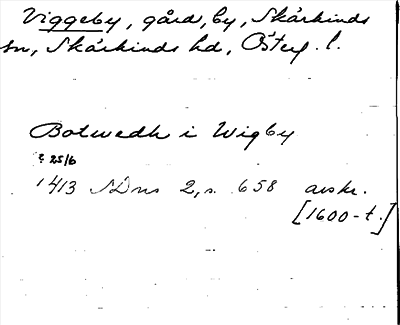 Viggeby, gård, by, Skärkinds
sn, Skärkinds hd, Österg. l.
Botwedh i Wigby
25/6
1413 SDns 2, s. 658 avskr.
[1600-t.]